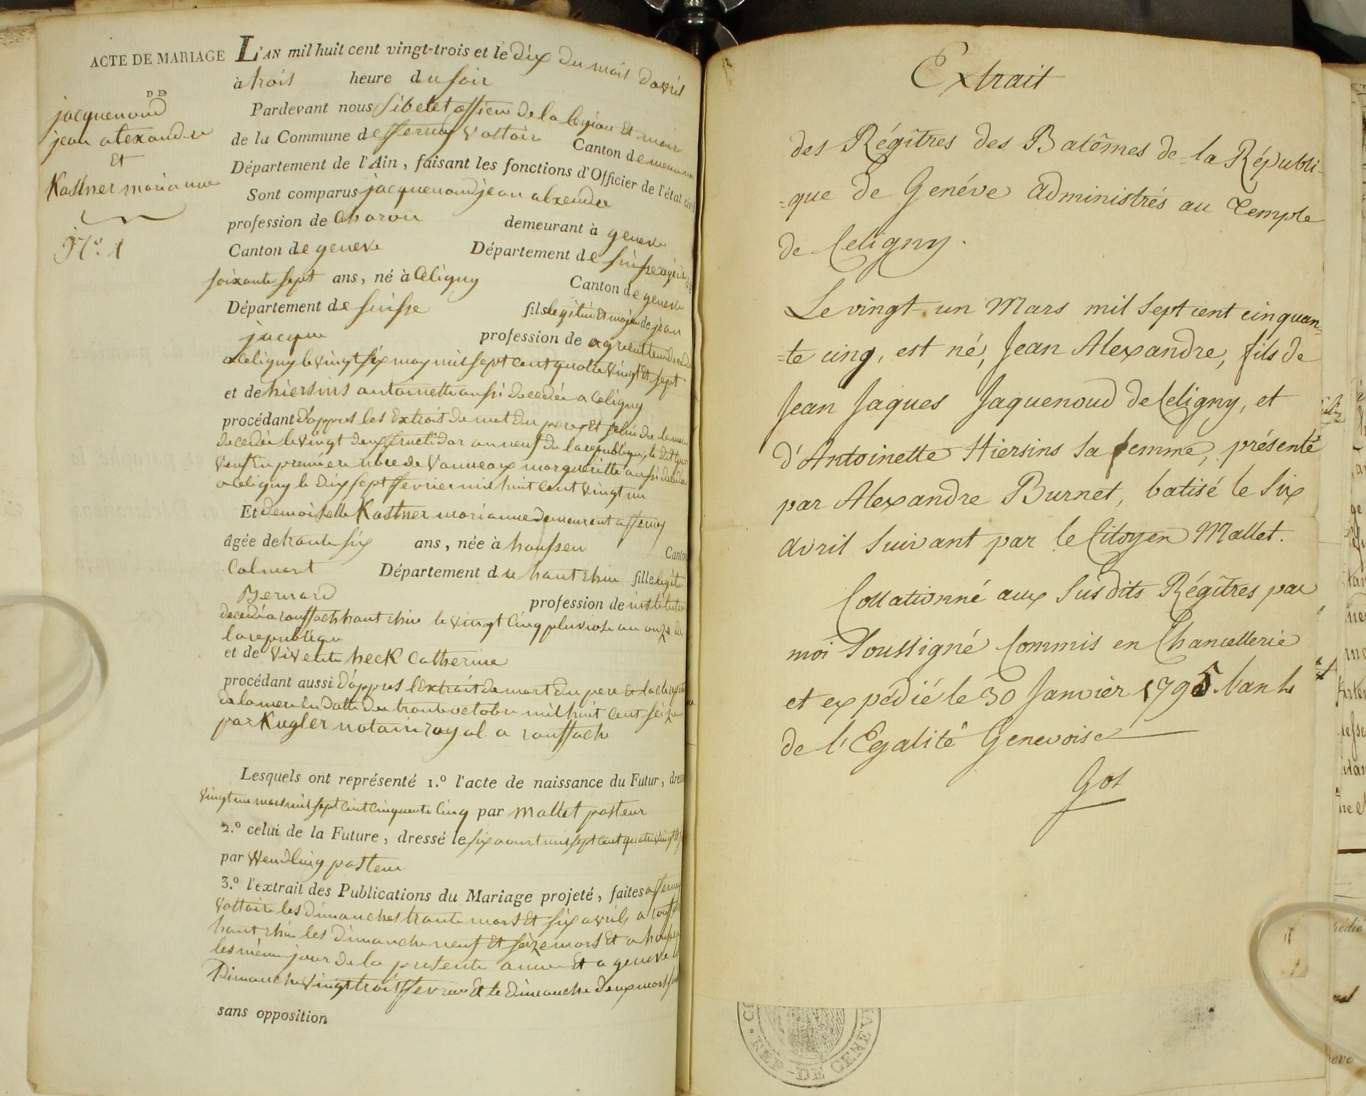 ACTE DE MARIAGE
D D
jacquenoud
jean alexandre
Et
Kastner marianne
N.º 1
L'AN mil huit cent vingt-trois et le dix du mois davril
à trois heure du soir
Pardevant nous officier de la legion Et mair
de la Commune de fferney Voltair Canton de
Département de l'Ain, faisant les fonctions d'Officier de l'état
Sont comparus jacquenoud jean alxendre
profession de Charon demeurant à geneve
Canton de geneve Département de suisse agé de
soixante sept ans, né à Céligny Canton de geneve
Département de suisse fils legitim Et majeur de jean
jacque profession de agriculteur
a Celigny le vingt six may mil sept cent quatre vingt Et sept
et de hiersins antoinette aussi decedée a Celigny
procédant d'appres les Extrait de mort du pere Et celui de la mere
decedée le vingt deux fructidor an neuf de la republique, le dit
veuf En premiere noce de Vanneaux marguerite aussi
a Celigny le dix sept ffevrier mil huit Cent vingt un
Et demoiselle Kastner marianne demeurent a fferney
âgée de trante six ans, née à haussen Canton
Colmart Département du haut rhin fille legit
Bernard profession de instituteur
decedé a rouffach haut rhin le vingt cinq pluviose an onze de
la republique
et de vivente heck Catherine
procédant aussi d'appres l'Extrait de mort du pere
de la mere En datte du trante octobre mil huit Cent
par Kugler notair royal a rouffach
Lesquels ont représenté 1.º l'acte de naissance du Futur,
vingt un mars mil sept cent cinquente Cinq par Mallet pasteur
2.º celui de la Future, dressé le six aout mil sept Cent quatre vingt
par Wendling pasteur
3.º l'extrait des Publications du Mariage projeté, faites a fferney
Voltaire les dimanches trante mars Et six avril, a
haut rhin les Dimanche neuf Et seize mars Et a
les même jour de la presente anné Et a geneve
Dimanche vingt trois ffevrier Et le dimanche deux mars
sans opposition
Extrait
des Régîtres des Batêmes de la Républi-
=que de Genéve administrés au Temple
de Celigny.
Le vingt un Mars mil sept cent cinquan-
=te cinq, est né, Jean Alexandre, fils de
Jean Jaques Jaquenoud de Celigny, et
d'Antoinette Hiersins sa femme, présenté
par Alexandre Burnet, batisé le six
avril suivant par le Citoyen Mallet.
Collationné aux susdits Régîtres par
moi soussigné Commis en Chancellerie
et expédié le 30 Janvier 1795 l'an 4
de l'Egalité Genevoise
Gos
REP. DE GENEVE